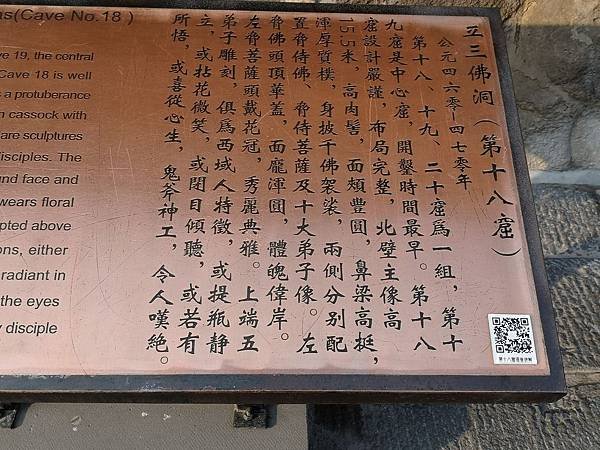 立三佛洞（第十八窟）
公元四六○-四七○年
第十八、十九、二十窟爲一組，第十
九窟是中心窟，開鑿時間最早。第十八
窟設計嚴謹，布局完整，北壁主像高
15.5米，高肉髻，面頰豐圓，鼻梁高挺，
渾厚質樸，身披千佛袈裟，兩側分别配
置脅侍佛、脅侍菩薩及十大弟子像。左
脅佛頭頂華蓋，面龐渾圓，體魄偉岸。
左脅菩薩頭戴花冠，秀麗典雅。上端五
弟子雕刻，俱爲西域人特徵，或提瓶静
立，或拈花微笑，或閉目傾聽，或若有
所悟，或喜從心生，鬼斧神工，令人嘆絶。
(Cave No.18 )
19, the central
Cave 18 is well
a protuberance
cassock with
are sculptures
disciples. The
face and
wears floral
above
either
radiant in
the eyes
disciple